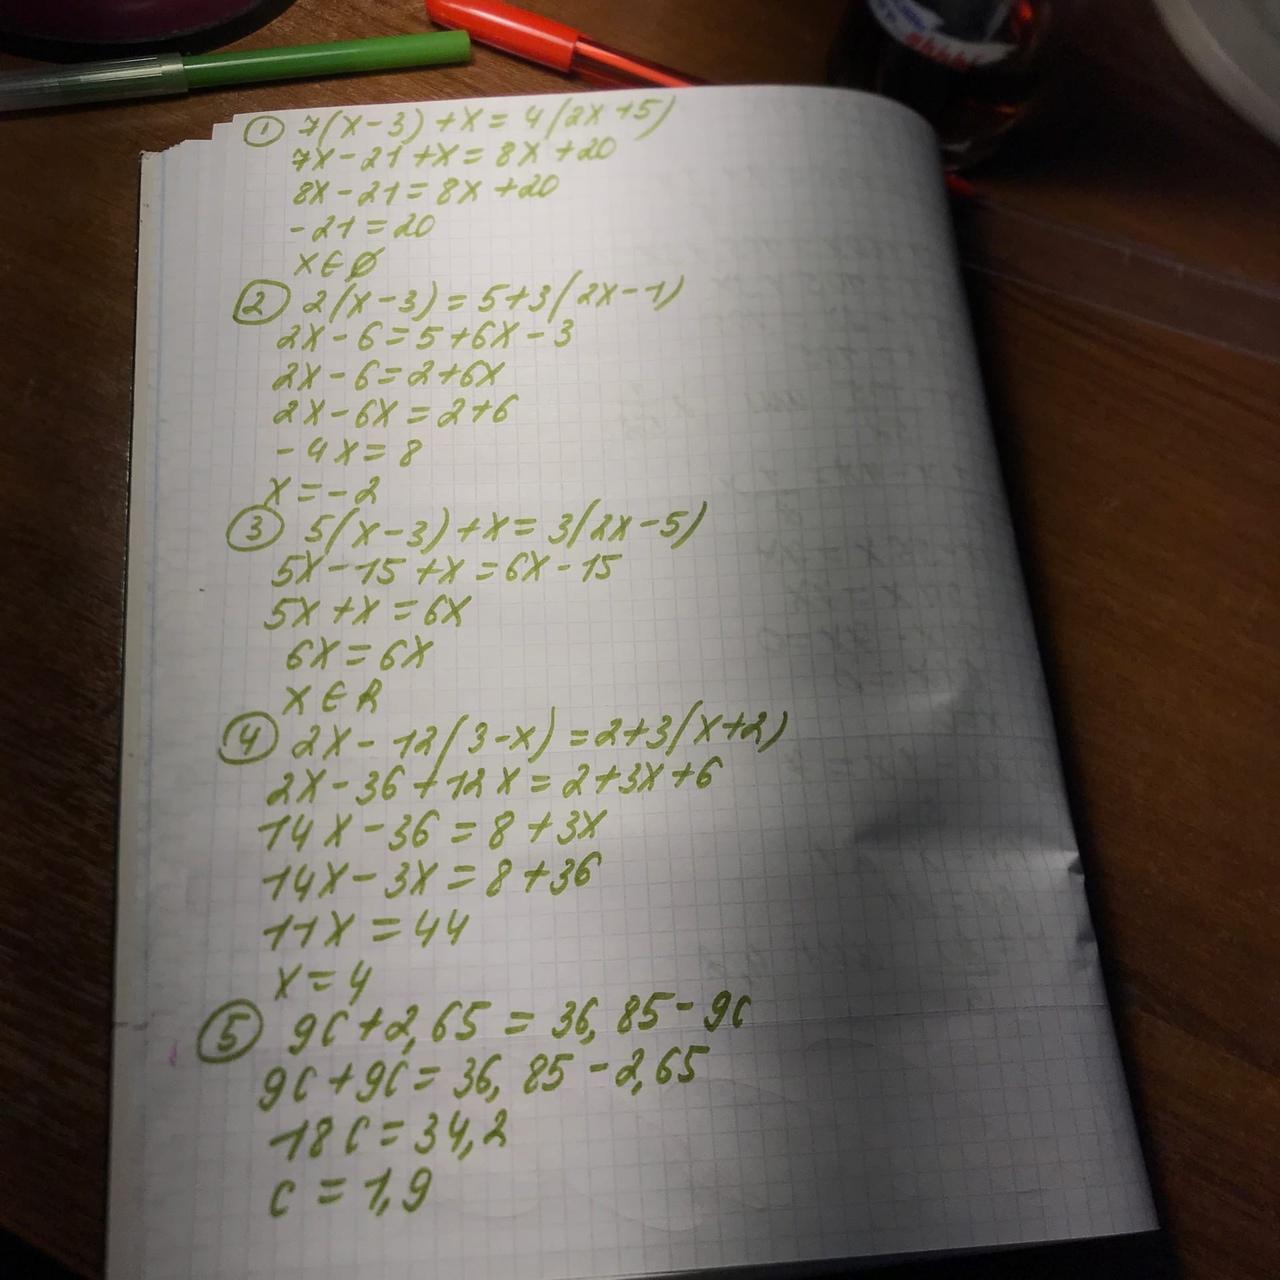 ① 7(x-3)+x=4(2x+5)
7x-21+x=8x+20
8x-21=8x+20
-21=20
x∈∅
② 2(x-3)=5+3(2x-1)
2x-6=5+6x-3
2x-6=2+6x
2x-6x=2+6
-4x=8
x=-2
③ 5(x-3)+x=3(2x-5)
5x-15+x=6x-15
5x+x=6x
6x=6x
x∈R
④ 2x-12(3-x)=2+3(x+2)
2x-36+12x=2+3x+6
14x-36=8+3x
14x-3x=8+36
11x=44
x=4
⑤ 9c+2,65=36,85-9c
9c+9c=36,85-2,65
18c=34,2
c=1,9